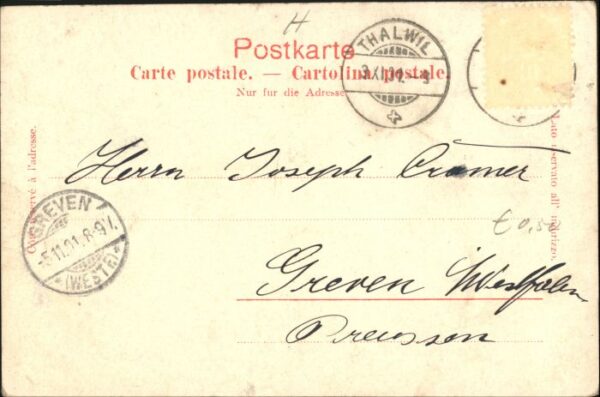 H
Postkarte
Carte postale. — Cartolina postale.
Nur für die Adresse
THALWIL
Côté réservé à l'adresse.
Lato riservato all' indirizzo.
Herrn Joseph Cramer
GREVEN
-5.11.01.8-9V.
* (WESTF.)
€ 0,50
Greven Westfalen
Preussen